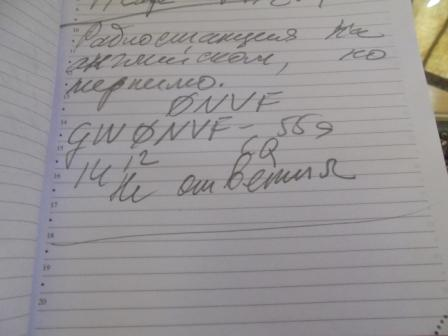 Радиостанция на
английском, но
терпимо.
ØNVF
GWØNVF - 559
14 12 CQ
Не ответил